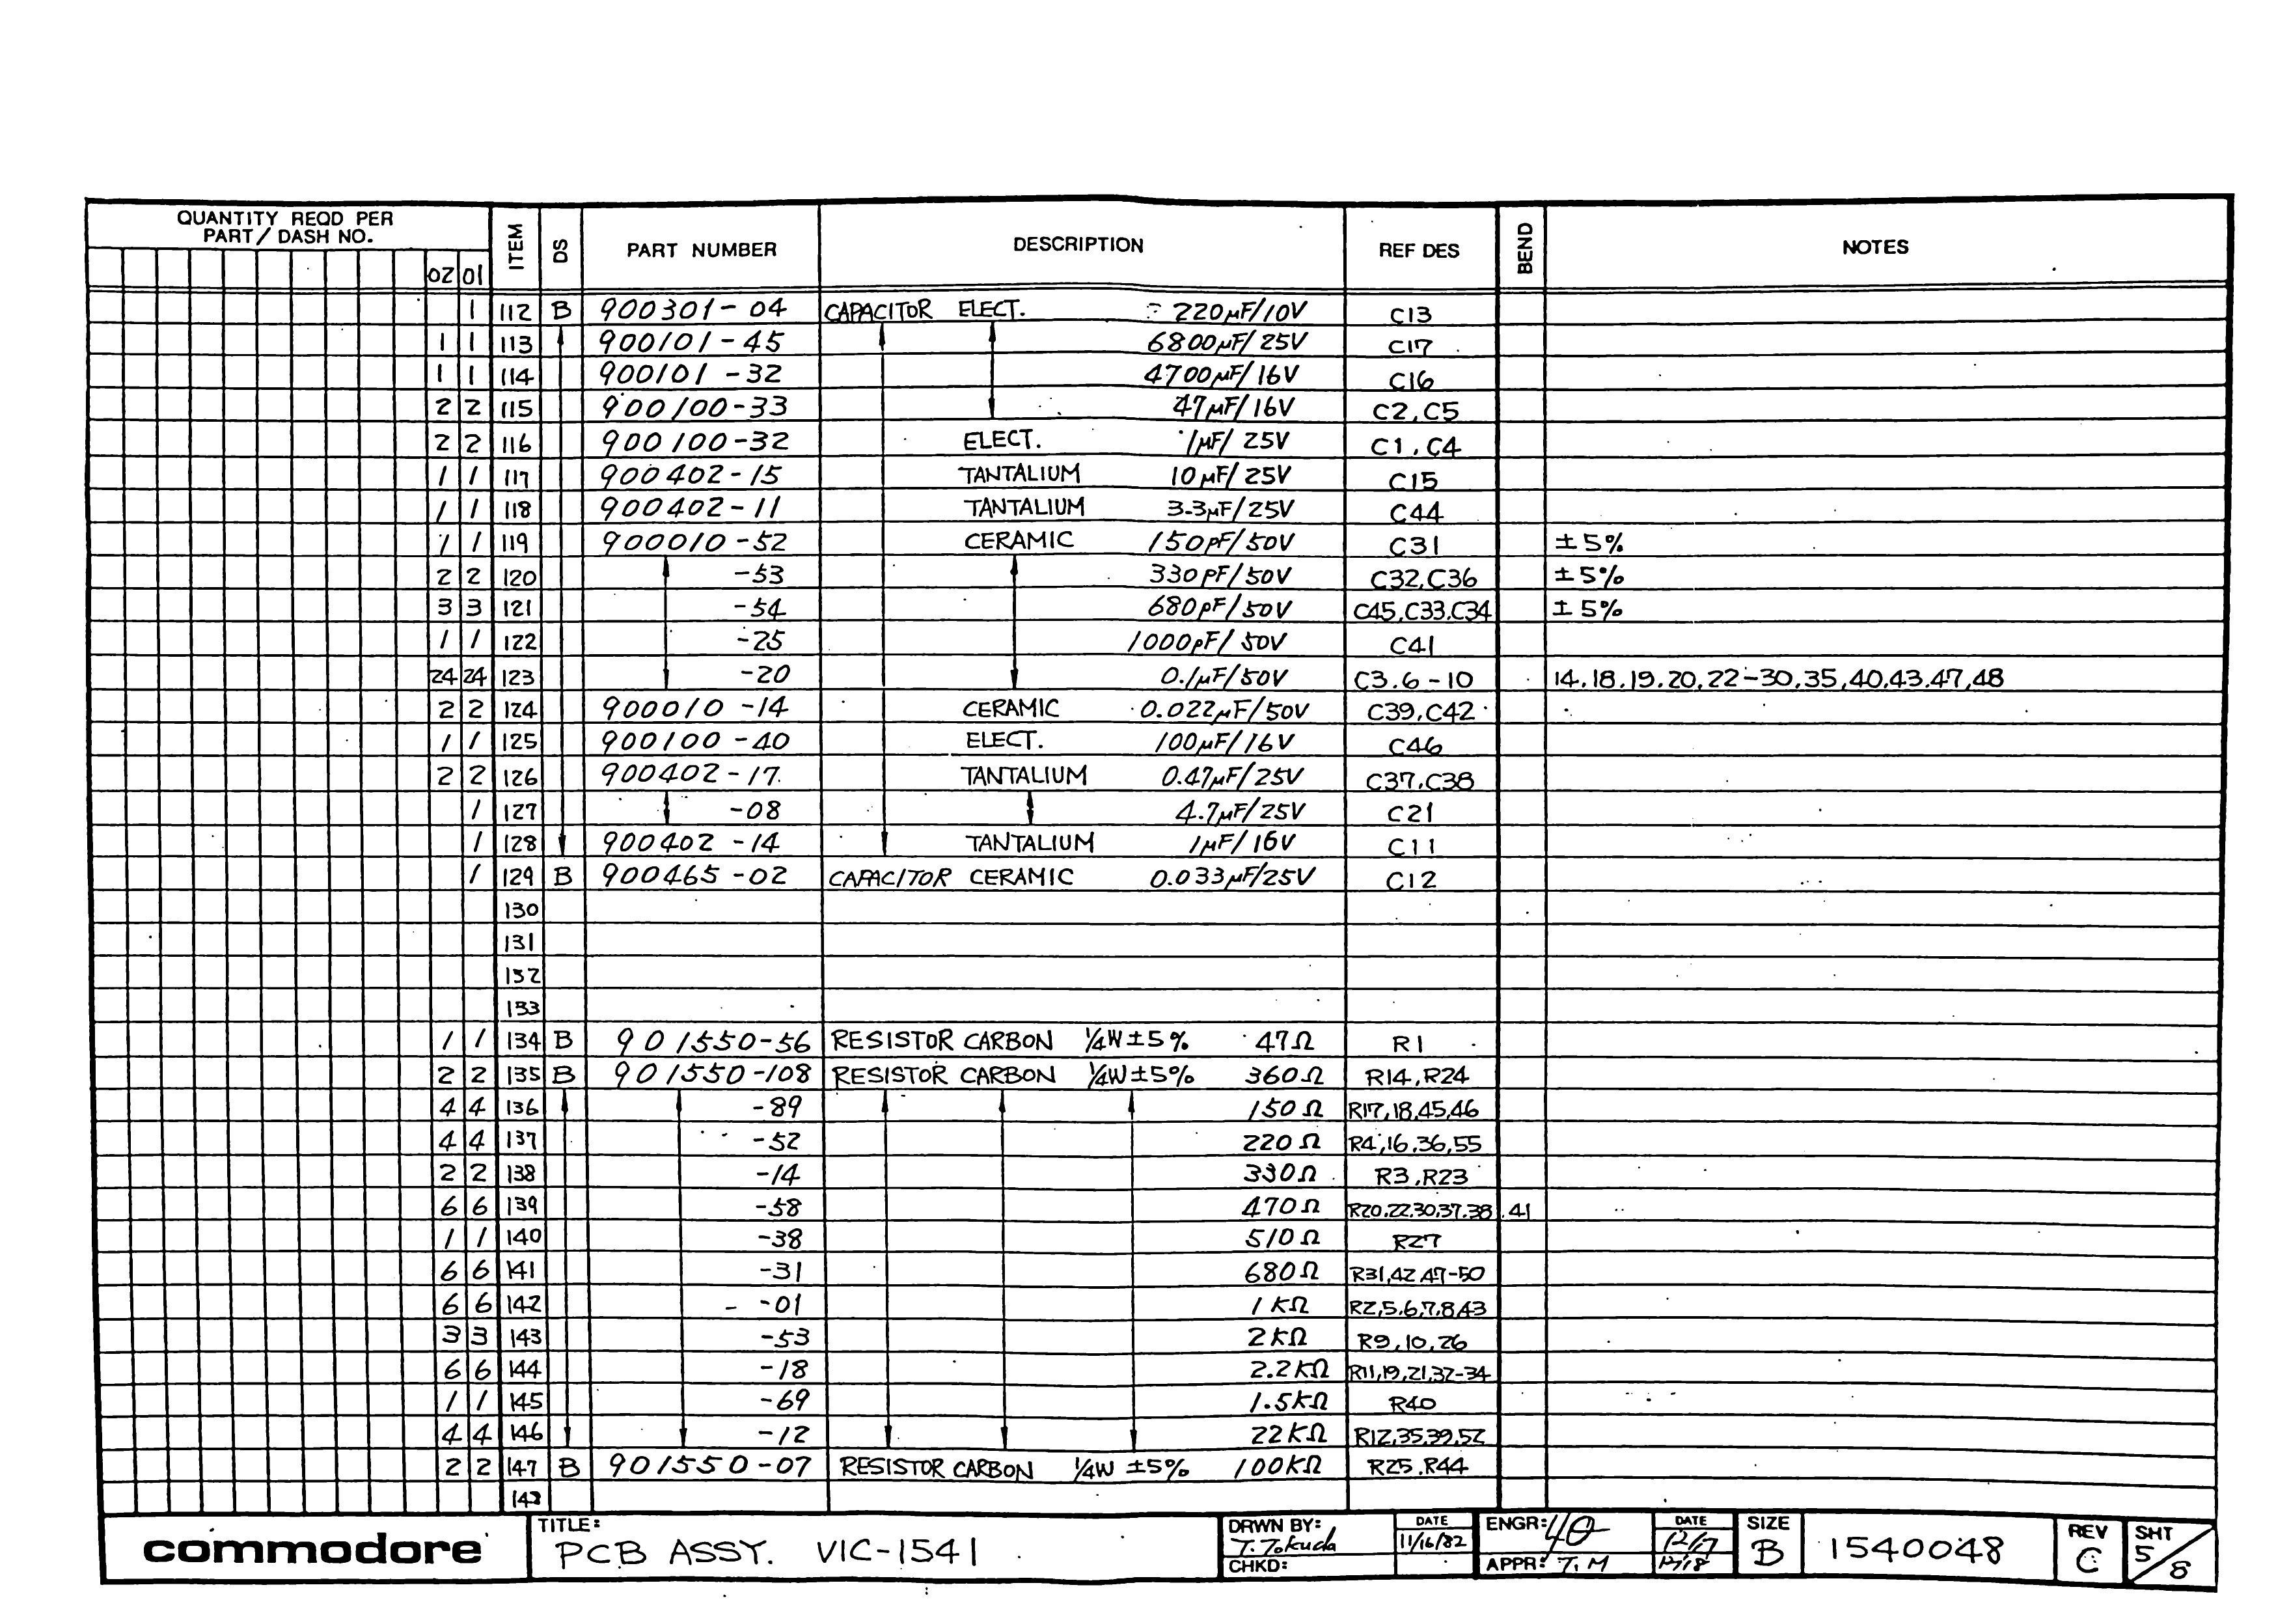 QUANTITY REQD PER
PART/ DASH NO.
02 01 ITEM DS PART NUMBER DESCRIPTION REF DES BEND NOTES
1 112 B 900301-04 CAPACITOR ELECT. 220µF/10V C13
1 1 113 900101-45 6800µF/25V C17
1 1 114 900101-32 4700µF/16V C16
2 2 115 900100-33 47µF/16V C2,C5
2 2 116 900100-32 ELECT. 1µF/25V C1,C4
1 1 117 900402-15 TANTALIUM 10µF/25V C15
1 1 118 900402-11 TANTALIUM 3.3µF/25V C44
1 1 119 900010-52 CERAMIC 150PF/50V C31 ±5%
2 2 120 -53 330PF/50V C32,C36 ±5%
3 3 121 -54 680PF/50V C45,C33,C34 ±5%
1 1 122 -25 1000PF/50V C41
24 24 123 -20 0.1µF/50V C3.6-10 14.18.19.20,22-30,35,40,43.47,48
2 2 124 900010-14 CERAMIC 0.022µF/50V C39,C42
1 1 125 900100-40 ELECT. 100µF/16V C46
2 2 126 900402-17 TANTALIUM 0.47µF/25V C37,C38
1 127 -08 4.7µF/25V C21
1 128 900402-14 TANTALIUM 1µF/16V C11
1 129 B 900465-02 CAPACITOR CERAMIC 0.033µF/25V C12
130
131
132
133
1 1 134 B 901550-56 RESISTOR CARBON ¼W±5% 47Ω R1
2 2 135 B 901550-108 RESISTOR CARBON ¼W±5% 360Ω R14,R24
4 4 136 -89 150Ω R17,18,45,46
4 4 137 -52 220Ω R4,16,36,55
2 2 138 -14 330Ω R3,R23
6 6 139 -58 470Ω R20,22,30,37,38,41
1 1 140 -38 510Ω R27
6 6 141 -31 680Ω R31,42,47-50
6 6 142 -01 1KΩ R2,5,6,7,8,43
3 3 143 -53 2KΩ R9,10,26
6 6 144 -18 2.2KΩ R11,19,21,32-34
1 1 145 -69 1.5KΩ R40
4 4 146 -12 22KΩ R12,35,39,52
2 2 147 B 901550-07 RESISTOR CARBON ¼W ±5% 100KΩ R25,R44
148
commodore TITLE: PCB ASSY. VIC-1541
DRWN BY: T. Tokuda DATE 11/16/82
CHKD:
ENGR: DATE 12/17
APPR: T.M 12/18
SIZE B 1540048 REV C SHT 5/8